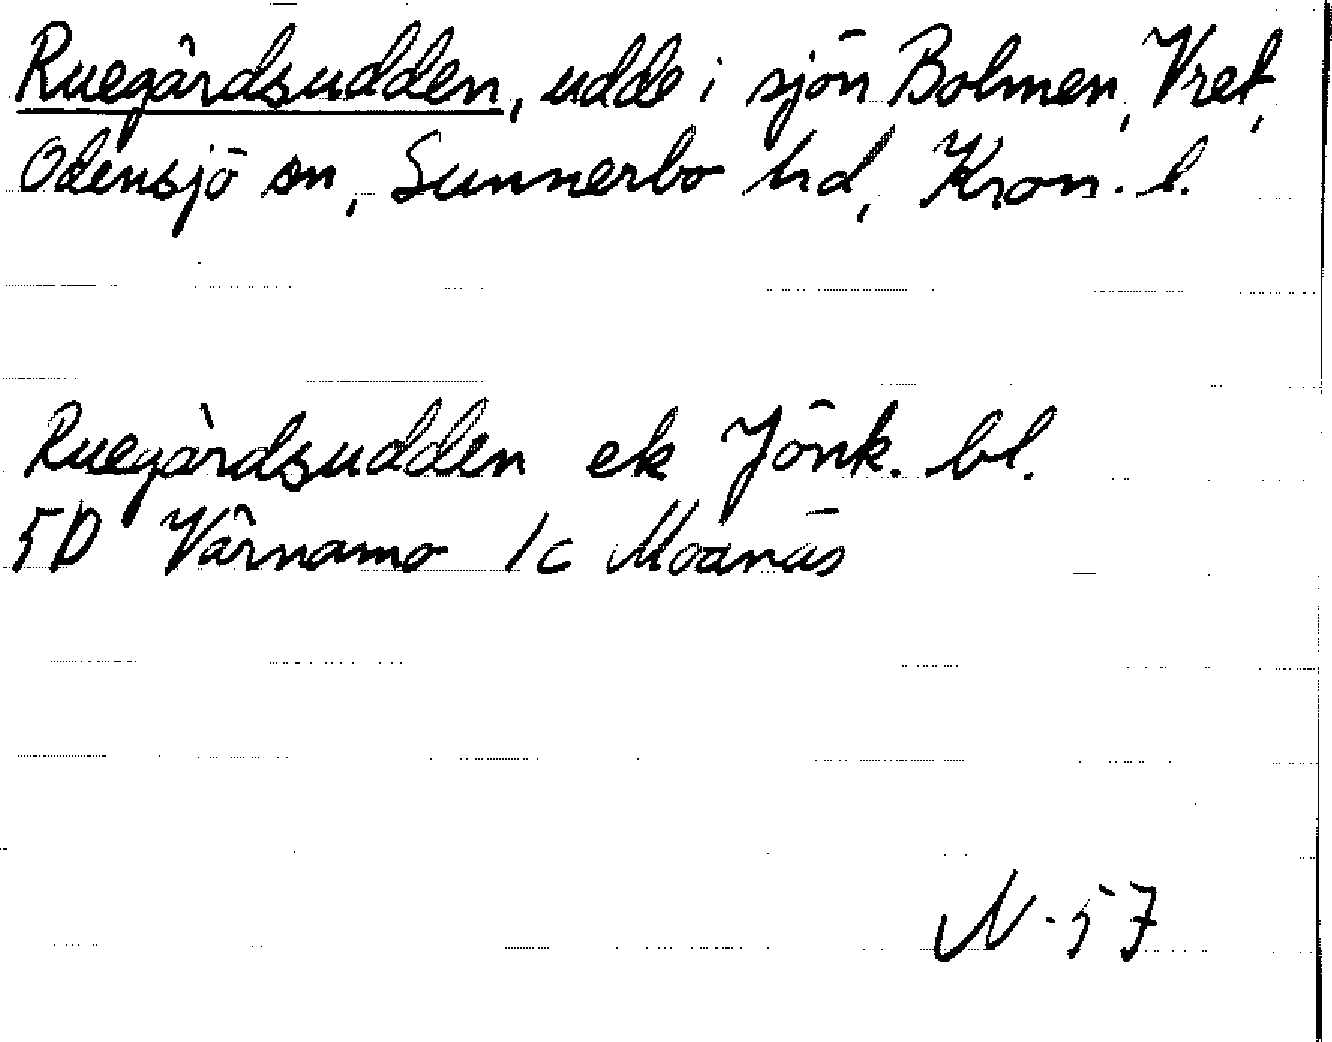 Ruegårdsudden, udde i sjön Bolmen, Vret,
Odensjö sn, Sunnerbo hd, Kron. l.
Ruegårdsudden ek Jönk. bl.
5D Värnamo 1c Moanäs
N-57